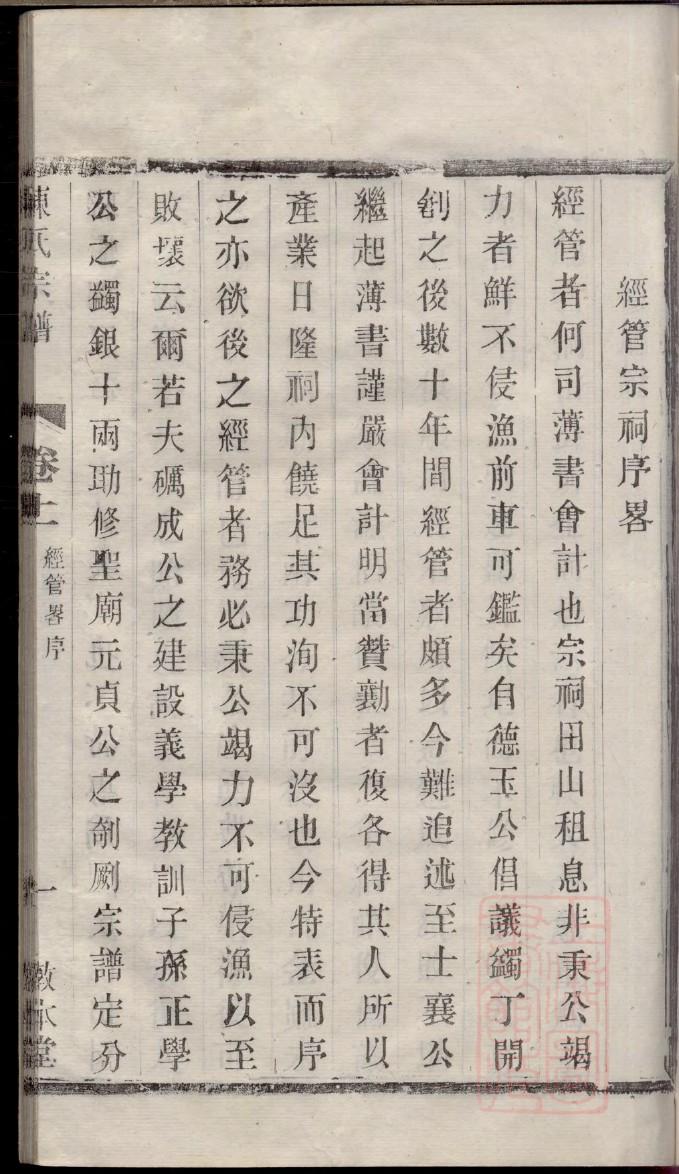 經管宗祠序畧
經管者何司薄書會計也宗祠田山租息非秉公竭
力者鮮不侵漁前車可鑑矣自德玉公倡議蠲丁開
創之後數十年間經管者頗多今難追述至士襄公
繼起薄書謹嚴會計明當贊勷者復各得其人所以
產業日隆祠內饒足其功洵不可沒也今特表而序
之亦欲後之經管者務必秉公竭力不可侵漁以至
敗壞云爾若夫礪成公之建設義學教訓子孫正學
公之蠲銀十兩助修聖廟元貞公之剞劂宗譜定分
陳氏宗譜
卷上
經管畧序
一
敦本堂